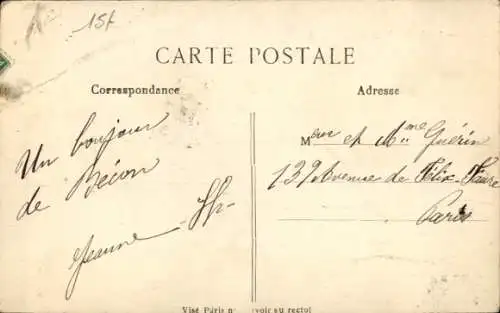 15f
CARTE POSTALE
Correspondance
Adresse
Un bonjour
de Bécon
Jeanne
Meur et Mme Guérin
139 Avenue de Félix-Faure
Paris
Visé Paris
au recto